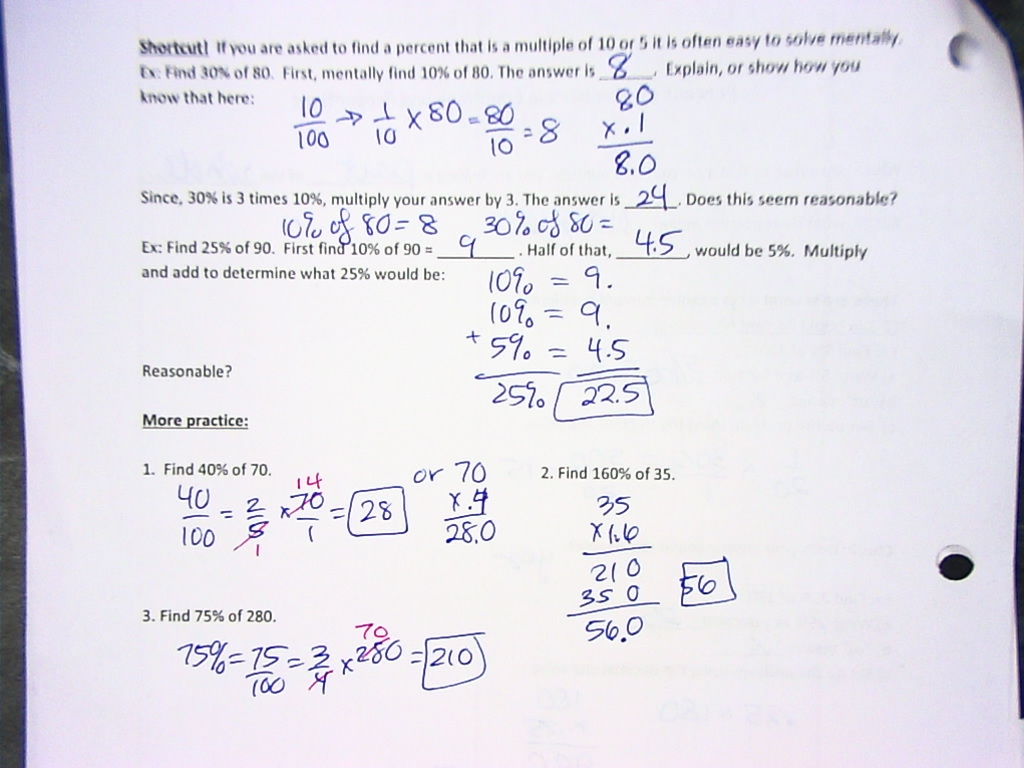 Shortcut! If you are asked to find a percent that is a multiple of 10 or 5 it is often easy to solve mentally.
Ex: Find 30% of 80. First, mentally find 10% of 80. The answer is 8. Explain, or show how you
know that here:
10/100 → 1/10 × 80 = 80/10 = 8
80
x .1
8.0
Since, 30% is 3 times 10%, multiply your answer by 3. The answer is 24. Does this seem reasonable?
10% of 80 = 8 30% of 80 =
Ex: Find 25% of 90. First find 10% of 90 = 9. Half of that, 4.5, would be 5%. Multiply
and add to determine what 25% would be:
10% = 9.
10% = 9.
+ 5% = 4.5
25% 22.5
Reasonable?
More practice:
1. Find 40% of 70.
40/100 = 2/5 × 70/1 = 28
14
1
or 70
x .4
28.0
2. Find 160% of 35.
35
x 1.6
210
350
56.0
56
3. Find 75% of 280.
75% = 75/100 = 3/4 × 280 = 210
70